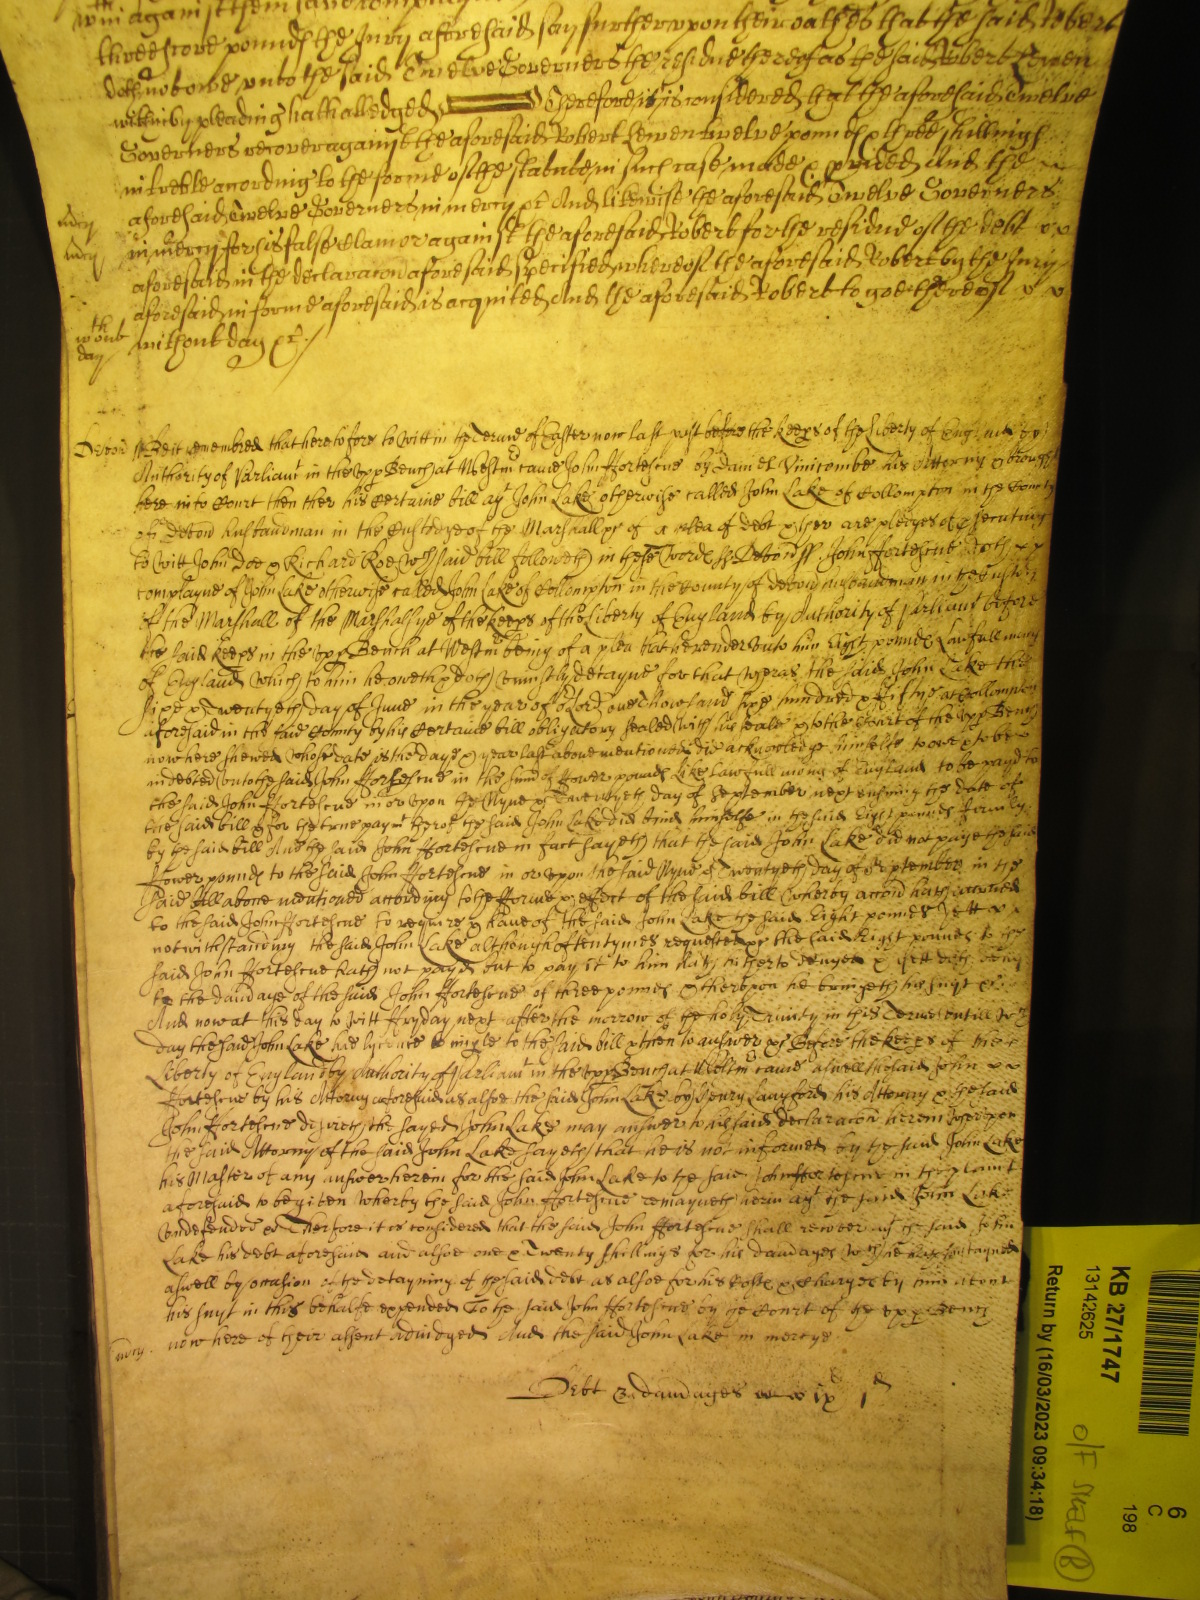 against them
threescore pounds the Jury aforesaid say further upon their oathes that the said Robert
doth not owe unto the said Twelve Governers the residue thereof as the said Robert Lewen
within by pleading hath alledged Therefore it is considered that the aforesaid Twelve
Governers recover against the aforesaid Robert Lewen twelve pounds & three shillings
in treble according to the forme of the statute in such case made & p[ro]vided And the
aforesaid Twelve Governers in mercy &c And likewise the aforesaid Twelve Governers
mcy
in mercy for his false clamor against the aforesaid Robert for the residue of the debt
mcy
aforesaid in the declaracon aforesaid specified whereof the aforesaid Robert by the Jury
aforesaid in forme aforesaid is acquited And the aforesaid Robert to goe thereof
wthout day
without day &c
Devon ss Be it remembred that heretofore to witt in the Terme of Easter now last past before the keeps of the liberty of England by
Authority of Parliamt in the upp Bench at Westmr came John Ffortescue by Daniel Vinicombe his Attorny & brought
here into Court then ther his certaine bill agt John Lake otherwise called John Lake of Collompton in the County
of Devon husbandman in the Custodye of the Marshall &c of a plea of debt & ther are pledges of p[ro]secuting
to witt John Doe & Richard Roe wch said bill followeth in these words ss Devon ss John Ffortescue doth
complayne of John Lake otherwise called John Lake of Collompton in the County of Devon husbandman in the Custody
of the Marshall of the Marshallsye of the keeps of the liberty of England by Authority of Parliamt before
the said keeps in the upp Bench at Westmr being of a plea that he render unto him Eight pounds Lawfull mony
of England which to him he oweth & doth uniustly detayne for that wheras the said John Lake the
sixe & Twentyeth day of June in the year of or Lord one thowsand sixe hundred & fiftye at Collompton
aforesaid in the said County by his certaine bill obligatory sealed with his seale & to the Court of the upp Bench
now here shewed whose date is the daye & year last above mentioned did acknowledge himselfe to owe & to bee
indebted unto the said John Ffortescue in the sume of Fower pounds like lawfull mony of England to be payd to
the said John Ffortescue in or upon the Nyne & Twentyeth day of September next ensuing the date of
the said bill & for the true paymt therof the said John Lake did bind himselfe in the said Eight pounds firmly
by the said bill And the said John Ffortescue in fact sayeth that the said John Lake did not paye the said
Fower pounds to the said John Ffortescue in or upon the said Nyne & Twentyeth day of September in the
said bill above mentioned according to the forme & effect of the said bill wherby accon hath accrued
to the said John Ffortescue to require & have of the said John Lake the said Eight pounds yett
notwithstanding the said John Lake although oftentymes requested &c the said Eight pounds to the
said John Ffortescue hath not payd but to pay it to him hath hitherto denyed & yett doth deny
to the damage of the said John Ffortescue of three pounds & therupon he bringeth his suyt &c
And now at this day to witt Ffryday next after the morrow of the holy Trinity in this Terme untill wch
day the said John Lake had lycence to imple to the said bill & then to answer &c Before the keeps of the
Liberty of England by Authority of Parliamt in the upp Bench at Westmr came aswell the said John
Fortescue by his Attorny aforesaid as alsoe the said John Lake by Henry Langford his Attorny & the said
John Ffortescue desireth the sayed John Lake may answer to his said declaracon herein Wherupon
the said Attorny of the said John Lake sayeth that he is not informed by the said John Lake
his Master of any answer herein for the said John Lake to the said John Ffortescue in the plaint
aforesaid to be given wherby the said John Ffortescue remayneth herin agt the said John Lake
undefended &c Therfore it is considered that the said John Ffortescue shall recover agt the said John
Lake his debt aforesaid and alsoe one & Twenty shillings for his damages wch he hath sustayned
aswell by occasion of the detayning of the said debt as alsoe for his costs & charges by him about
his suyt in this behalfe expended To the said John Ffortescue by the Court of the upp Bench
mcy. now here of their assent adiudged And the said John Lake in mercye
Debt & damages ix l
KB 27/1747
13142625
Return by (16/03/2023 09:34:18)
6
C
198
O/F Shelf (B)